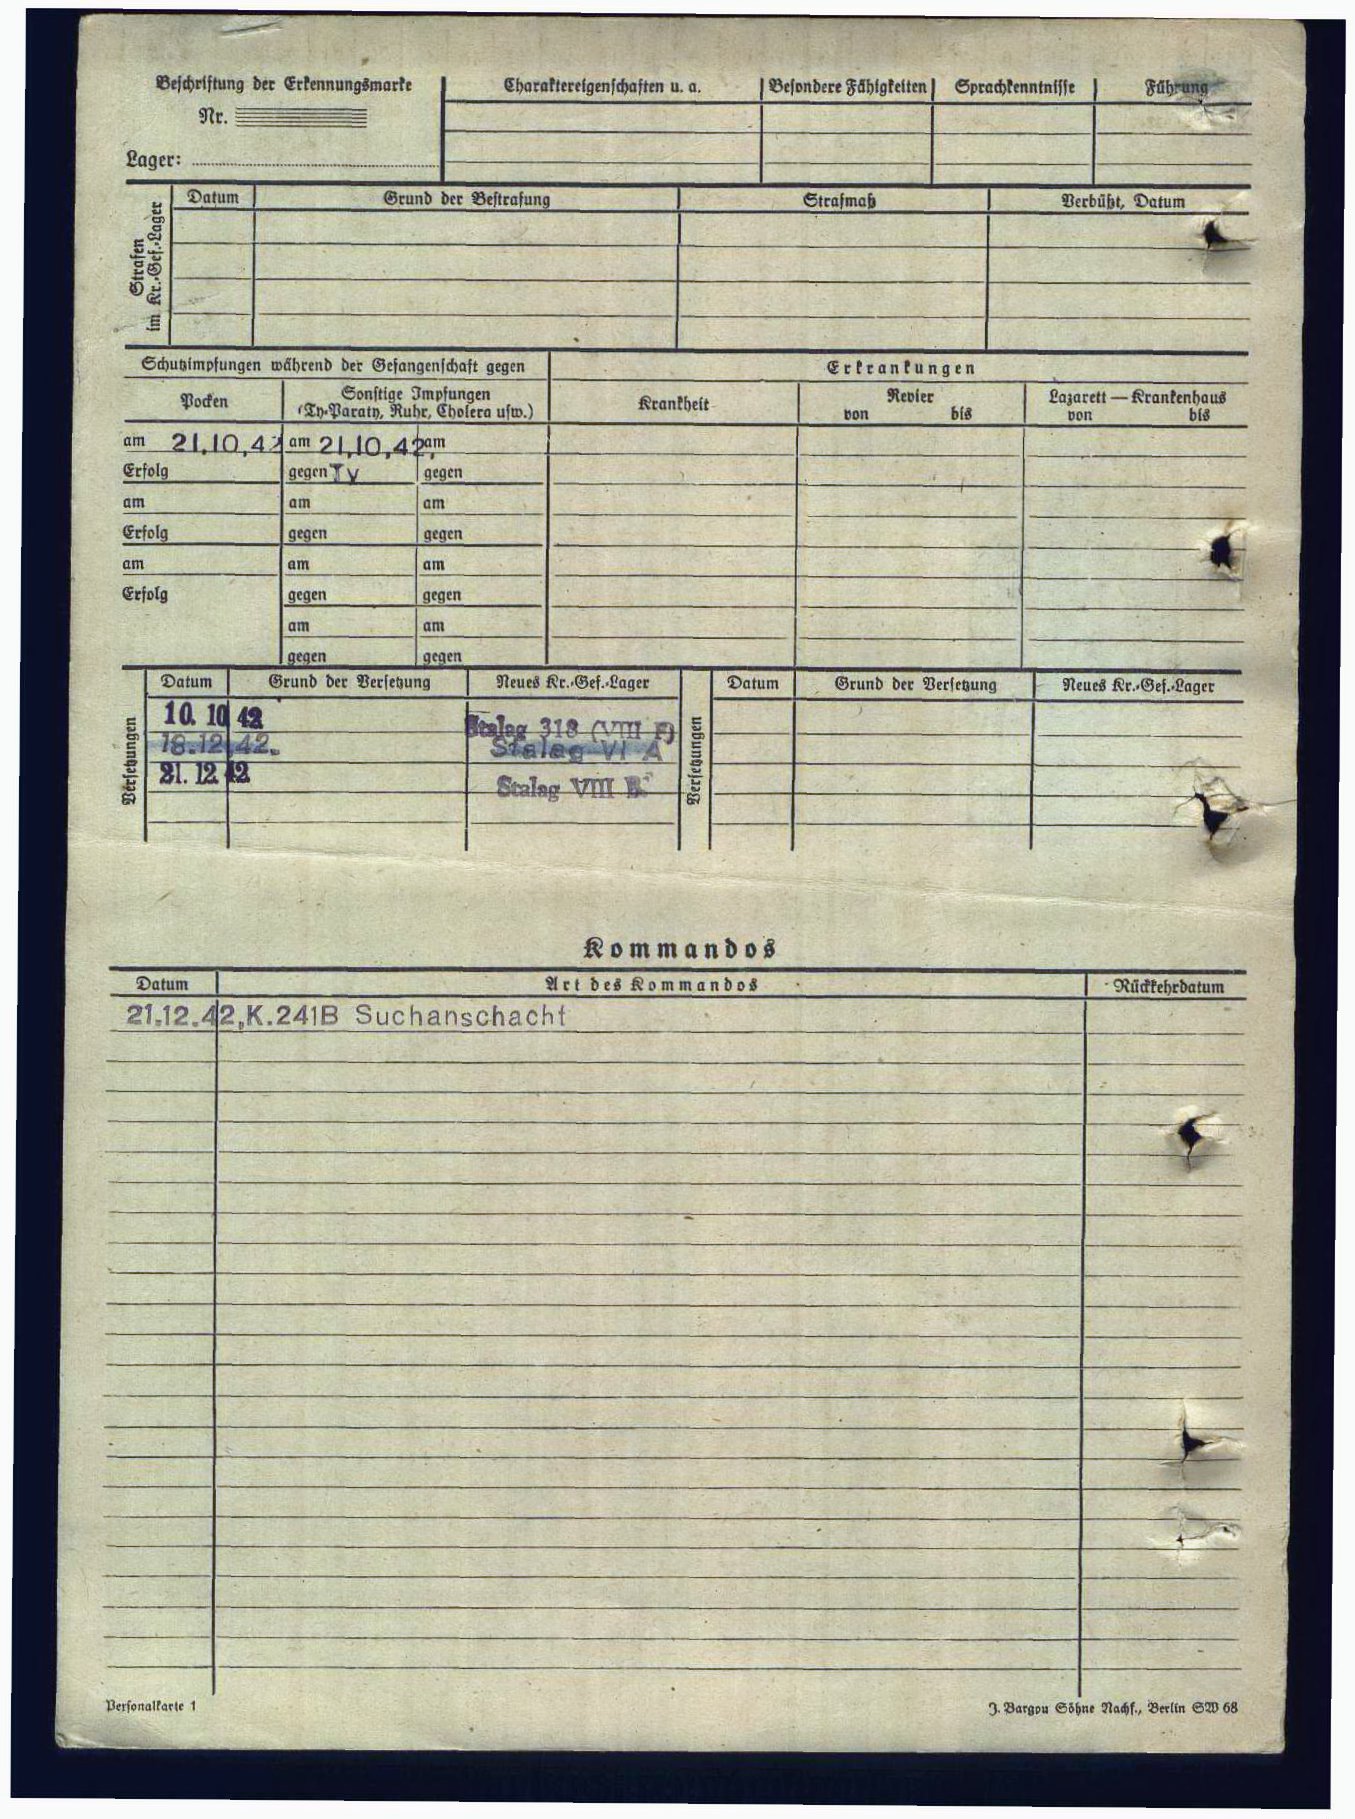 Beschriftung der Erkennungsmarke
Nr.
Lager:
Charaktereigenschaften u. a.
Besondere Fähigkeiten
Sprachkenntnisse
Führung
Strafen im Kr.-Gef.-Lager
Datum
Grund der Bestrafung
Strafmaß
Verbüßt, Datum
Schutzimpfungen während der Gefangenschaft gegen
Erkrankungen
Pocken
Sonstige Impfungen
(Ty-Paraty, Ruhr, Cholera usw.)
Krankheit
Revier
von bis
Lazarett — Krankenhaus
von bis
am 21.10.42 am 21.10.42. am
Erfolg gegen Ty gegen
am am am
Erfolg gegen gegen
am am am
Erfolg gegen gegen
am am
gegen gegen
Versetzungen
Datum Grund der Versetzung Neues Kr.-Gef.-Lager
10. 10 42 Stalag 318 (VIII F)
18.12.42. Stalag VI A
21. 12 42 Stalag VIII B
Versetzungen
Datum Grund der Versetzung Neues Kr.-Gef.-Lager
Kommandos
Datum Art des Kommandos Rückkehrdatum
21.12.42, K.241B Suchanschacht
Personalkarte 1
J. Bargou Söhne Nachf., Berlin SW 68